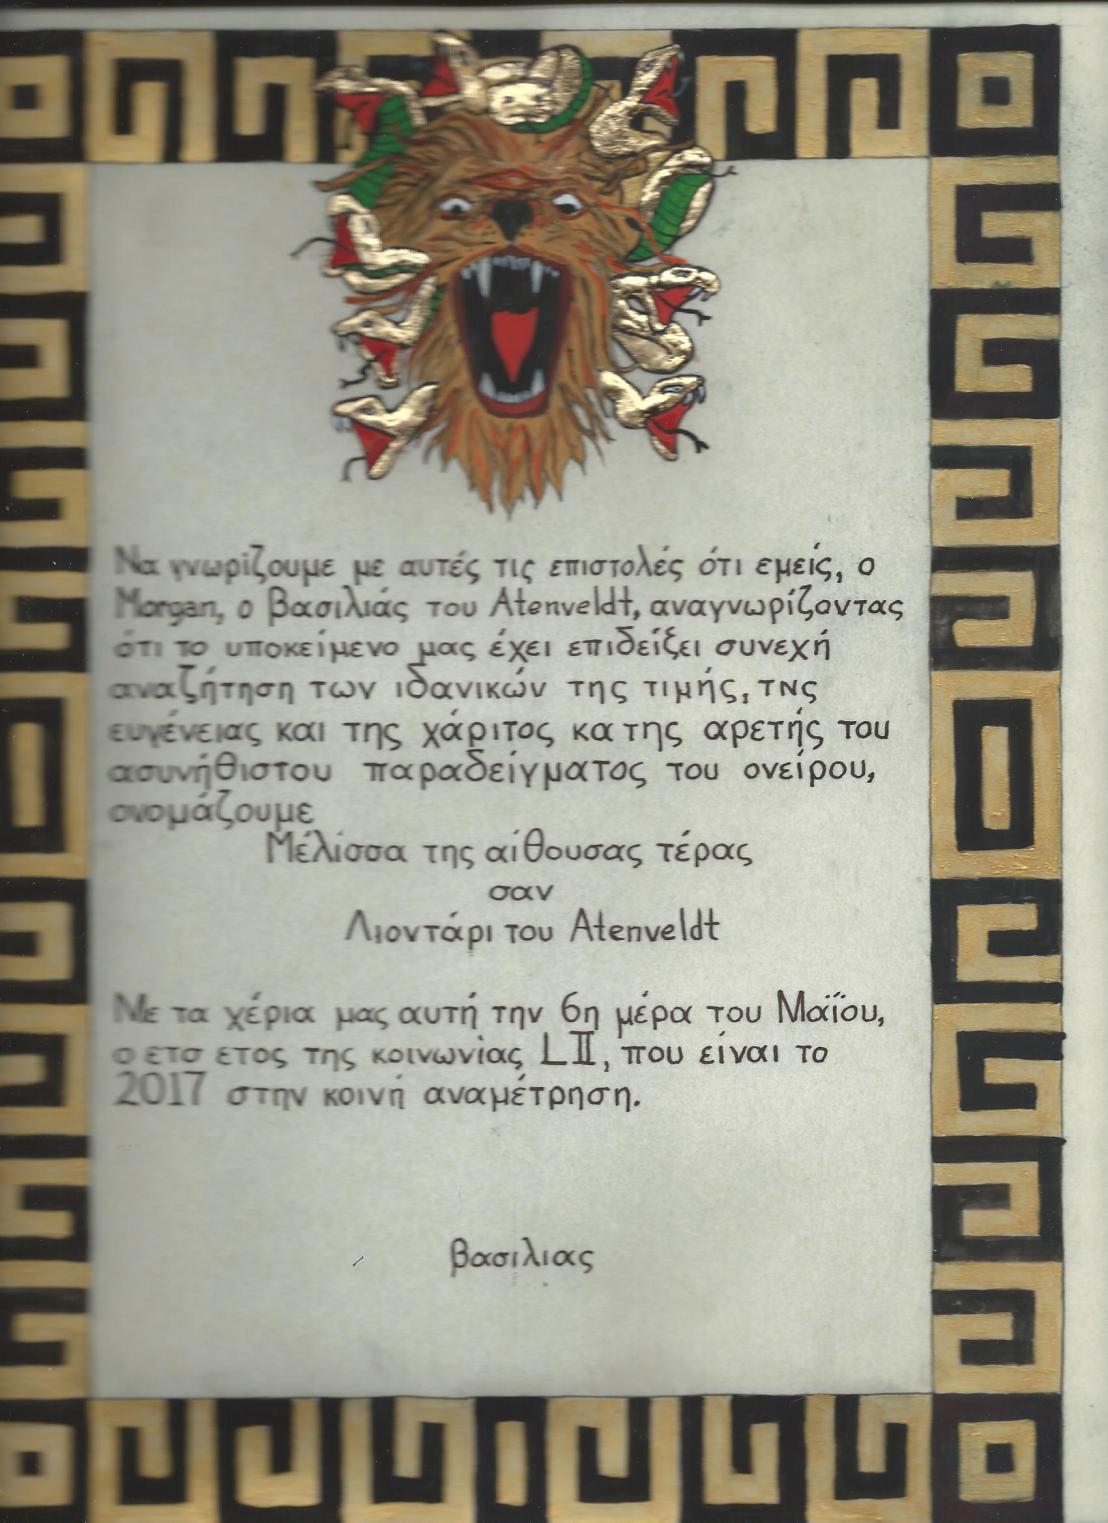 Να γνωρίζουμε με αυτές τις επιστολές ότι εμείς, ο
Morgan, ο βασιλιάς του Atenveldt, αναγνωρίζοντας
ότι το υποκείμενο μας έχει επιδείξει συνεχή
αναζήτηση των ιδανικών της τιμής, τνς
ευγένειας και της χάριτος κα της αρετής του
ασυνήθιστου παραδείγματος του ονείρου,
ονομάζουμε
Μέλισσα της αίθουσας τέρας
σαν
Λιοντάρι του Atenveldt
Με τα χέρια μας αυτή την 6η μέρα του Μαΐου,
ο ετσ ετος της κοινωνίας LII, που είναι το
2017 στην κοινή αναμέτρηση.
βασιλιας